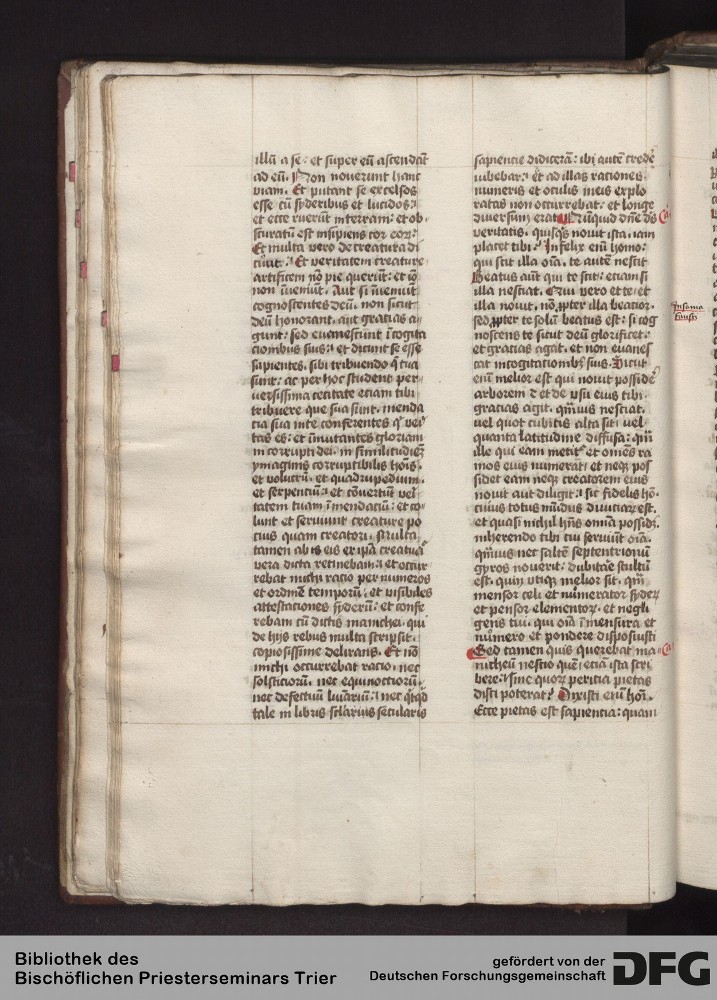 illū a se: et super eū ascendāt
ad eū. Non noverunt hanc
viam. Et putant se excelsos
esse cū syderibus et lucidos:
et ecce ruerūt interram: et ob
scuratū est insipiens cor eoꝝ:
Et multa vero de creatura di
cūt: Et veritatem creature
artificem nō pie querūt: et iō
non īveniūt. Aut si īveniūt
cognoscentes deū. non sicut
deū honorant. aut gratias a
gunt: sed evanescunt ī cogita
cionibus suis: et dicunt se esse
sapientes. sibi tribuendo q̄ tua
sunt: ac per hoc student per
versissima cecitate etiam tibi
tribuere que sua sunt. menda
cia sua in te conferentes q̄ veri
tas es: et īmutantes gloriam
in corrupti dei. in similitudinē
ymaginis corruptibilis hoīs.
et volucrū. et quadrupedum.
et serpentiū: et cōvertūt veri
tatem tuam ī mendaciū: et co
lunt et serviunt creature po
cius quam creatori. Multa
tamen ab iis ex ipā creatura
vera dicta retinebam: et occur
rebat michi racio per numeros
et ordinē temporū. et visibiles
attestaciones syderū: et confe
rebam cū dictis manichei. qui
de hijs rebus multa scripsit.
copiosissime delirans. Et nō
michi occurrebat racio. nec
solsticiorū. nec equinoctiorū.
nec defectuū luīarīū: nec q̄cq̄d
tale in libris secularis
sapiencie didiceram: ibi autē crede
iubebar: et ad illas raciones.
numeris et oculis meis explo
ratas non occurrebat: et longe
diversum erat. Nūquid dn̄e ds̄
veritatis. quisq̄s novit ista. iam
placet tibi: Infelix enī homo:
qui scit illa oīa. te autē nescit
Beatus aūt qui te scit: etiam si
illa nesciat. Qui vero et te et
illa novit. nō ꝓpter illa beatior.
sed ꝓpter te solū beatus est: si cog
noscens te sicut deū glorificet.
et gratias agat. et non evanes
cat in cogitationibꝫ suis. Sicut
enī melior est qui novit posside
arborem et de usu eius tibi
gratias agit. q̄mvis nesciat.
vel quot cubitis alta sit. vel
quanta latitudine diffusa: q̄m
ille qui eam metit et omēs ra
mos eius numerat. et neqꝫ pos
sidet eam neqꝫ creatorem eius
novit aut diligit: sic fidelis hō.
cuius totus mūdus diviciaꝝ est.
et quasi nichil hn̄s omnia possidꝫ.
inherendo tibi cui serviūt oīa.
q̄mvis nec saltē septentrionū
gyros noverit: dubitare stultū
est. quin utiqꝫ melior sit. q̄m
mensor celi et numerator syderꝝ
et pensor elementoꝝ. et negli
gens tui. qui oīa ī mensura et
numero et pondere disposuisti
Sed tamen quis querebat ma
nicheū nescio quē eciā ista scri
bere: sine quoꝝ pericia pietas
disci poterat: Dixisti enī hoī.
Ecce pietas est sapiencia: quam
Bibliothek des
Bischöflichen Priesterseminars Trier
gefördert von der
Deutschen Forschungsgemeinschaft
DFG